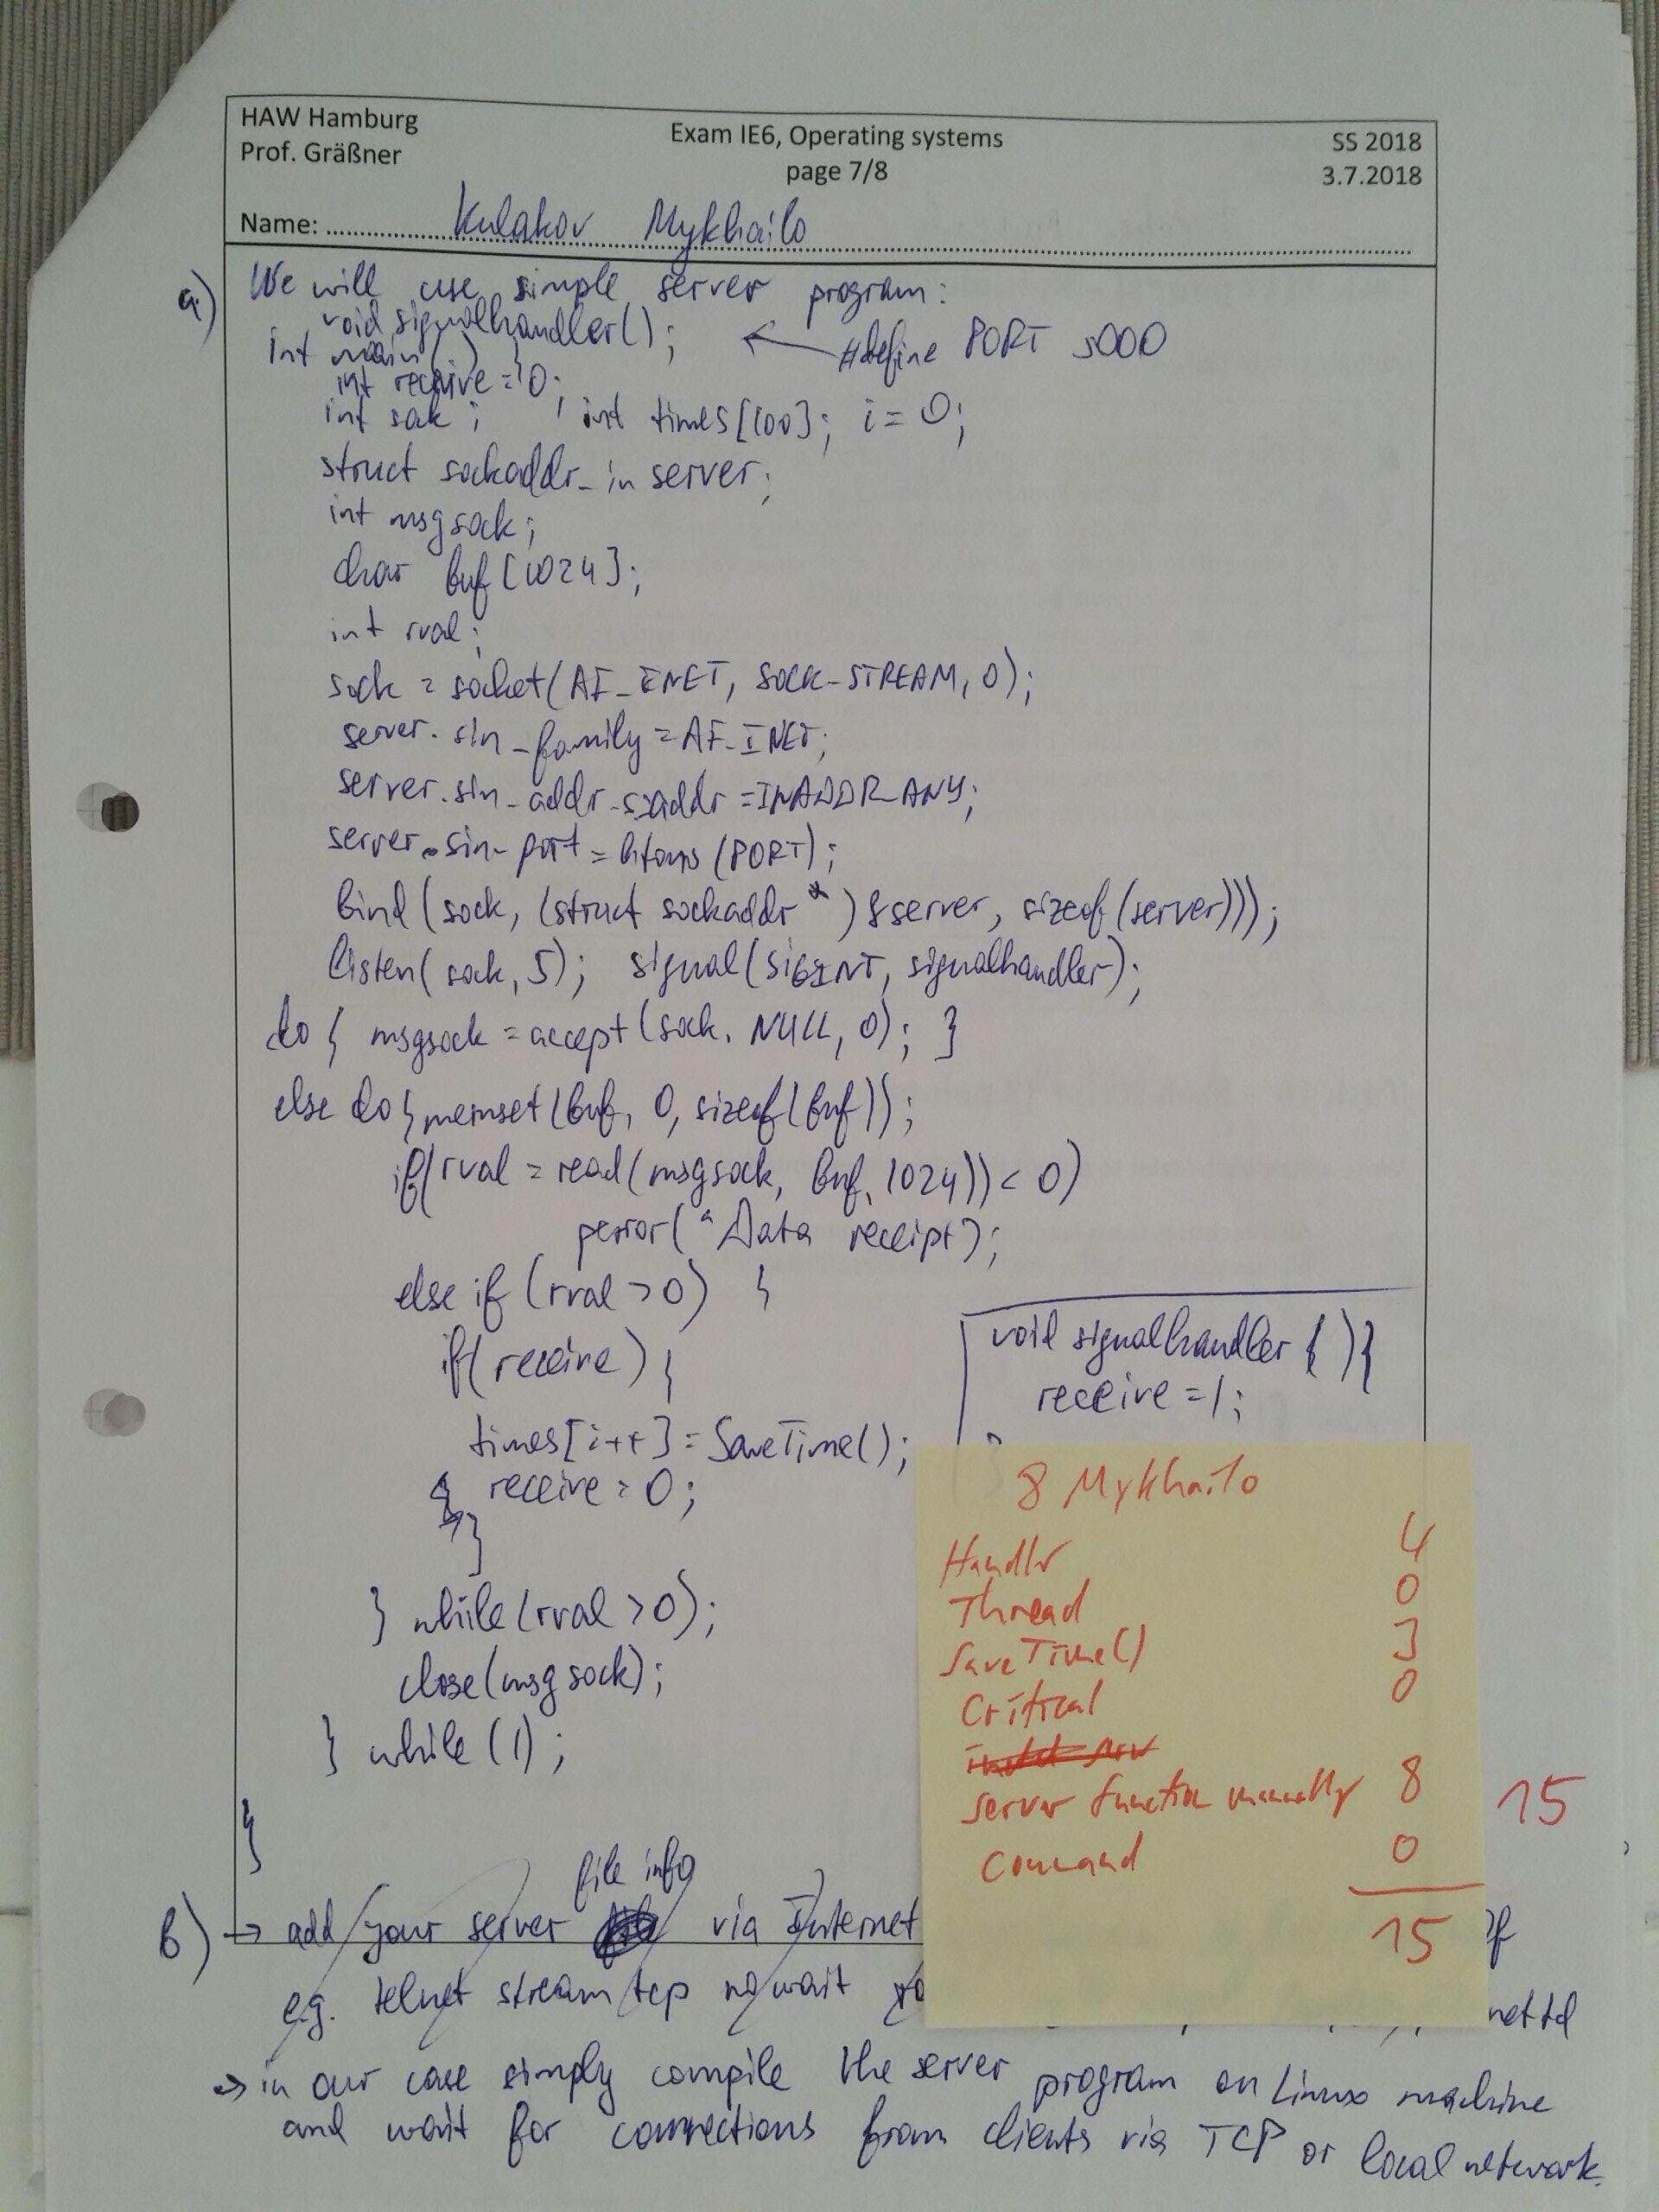 HAW Hamburg
Prof. Gräßner
Exam IE6, Operating systems
page 7/8
SS 2018
3.7.2018
Name: Kulakov Mykhailo
a) We will use simple server program:
void signalhandler(); ← #define PORT 5000
int main() {
int receive = 0;
int sock; int times[100]; i = 0;
struct sockaddr_in server;
int msgsock;
char buf [1024];
int rval;
sock = socket(AF_INET, SOCK_STREAM, 0);
server.sin_family = AF_INET;
server.sin_addr.s_addr = INADDR_ANY;
server.sin_port = htons (PORT);
bind (sock, (struct sockaddr *) &server, sizeof (server)));
listen( sock, 5); signal(SIGINT, signalhandler);
do { msgsock = accept (sock, NULL, 0); }
else do { memset (buf, 0, sizeof(buf));
if(rval = read (msgsock, buf, 1024)) < 0)
perror( "Data receipt);
else if (rval > 0) {
if( receive ) {
times [i++] = SaveTime();
receive = 0;
}
} while (rval > 0);
close (msgsock);
} while (1);
}
void signalhandler ( ) {
receive = 1;
}
8 Mykhailo
Handler 4
Thread 0
SaveTime() 3
Critical 0
server function manually 8
Command 0
15
15
b) → add your server file info via Internet
e.g. telnet stream tcp nowait
→ in our case simply compile the server program on Linux machine
and wait for connections from clients via TCP or local network.